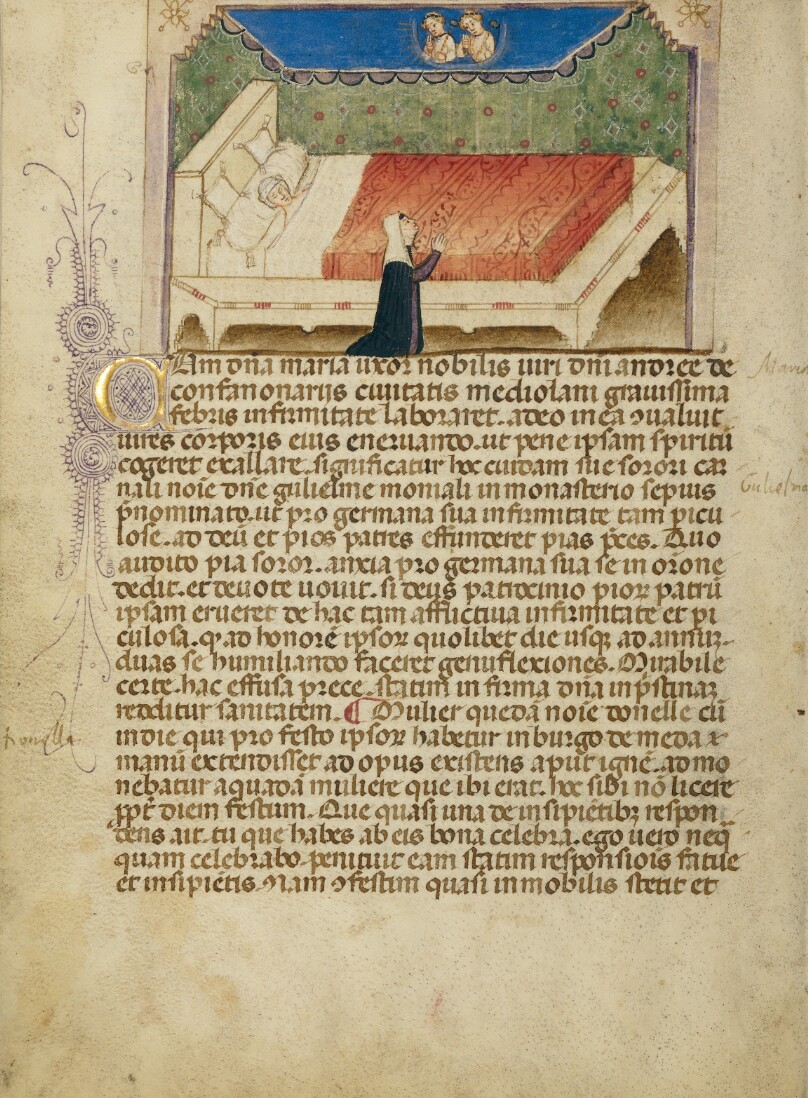 Cam dña maria uxor nobilis uiri dñi andree de
confanonariis ciuitatis mediolani grauissima
febris infirmitate laboraret. adeo in ea ꝯualuit
uires corporis eius eneruando. ut pene ipsam spiritũ
cogeret exallare. significatur hoc cuidam sue sorori car
nali noĩe dñe gulielme moniali in monasterio sepius
p̃nominato. ut pro germana sua infirmitate tam picu
lose. ad deũ et pios patres effunderet pias p̃ces. Quo
audito pia soror. anxia pro germana sua se in orõne
dedit. et deuote uouit. si deus patrocinio pioꝝ patrũ
ipsam erueret de hac tam afflictiua infirmitate et pi
culosa. ꝙ ad honorẽ ipsoꝝ quolibet die usqꝫ ad annuꝫ
duas se humiliando faceret genuflexiones. Mirabile
certe. hac effusa prece. statim infirma dña in p̃stinaꝫ
redditur sanitatem. ¶ Mulier quedã noĩe donelle cũ
in die qui pro festo ipsoꝝ habetur in burgo de meda
manũ extendisset ad opus existens aput ignẽ. ad mo
nebatur a quadã muliere que ibi erat. hoc sibi nõ licere
ꝓpt̃ diem festum. Que quasi una de insipiẽtibꝫ respon
dens ait. tu que habes ab eis bona celebra. ego uero neq̃
quam celebrabo. penituit eam statim responsiõis fatue
et insipiẽtis. Nam ꝯfestim quasi inmobilis stetit et
Maria
Gulielma
donella